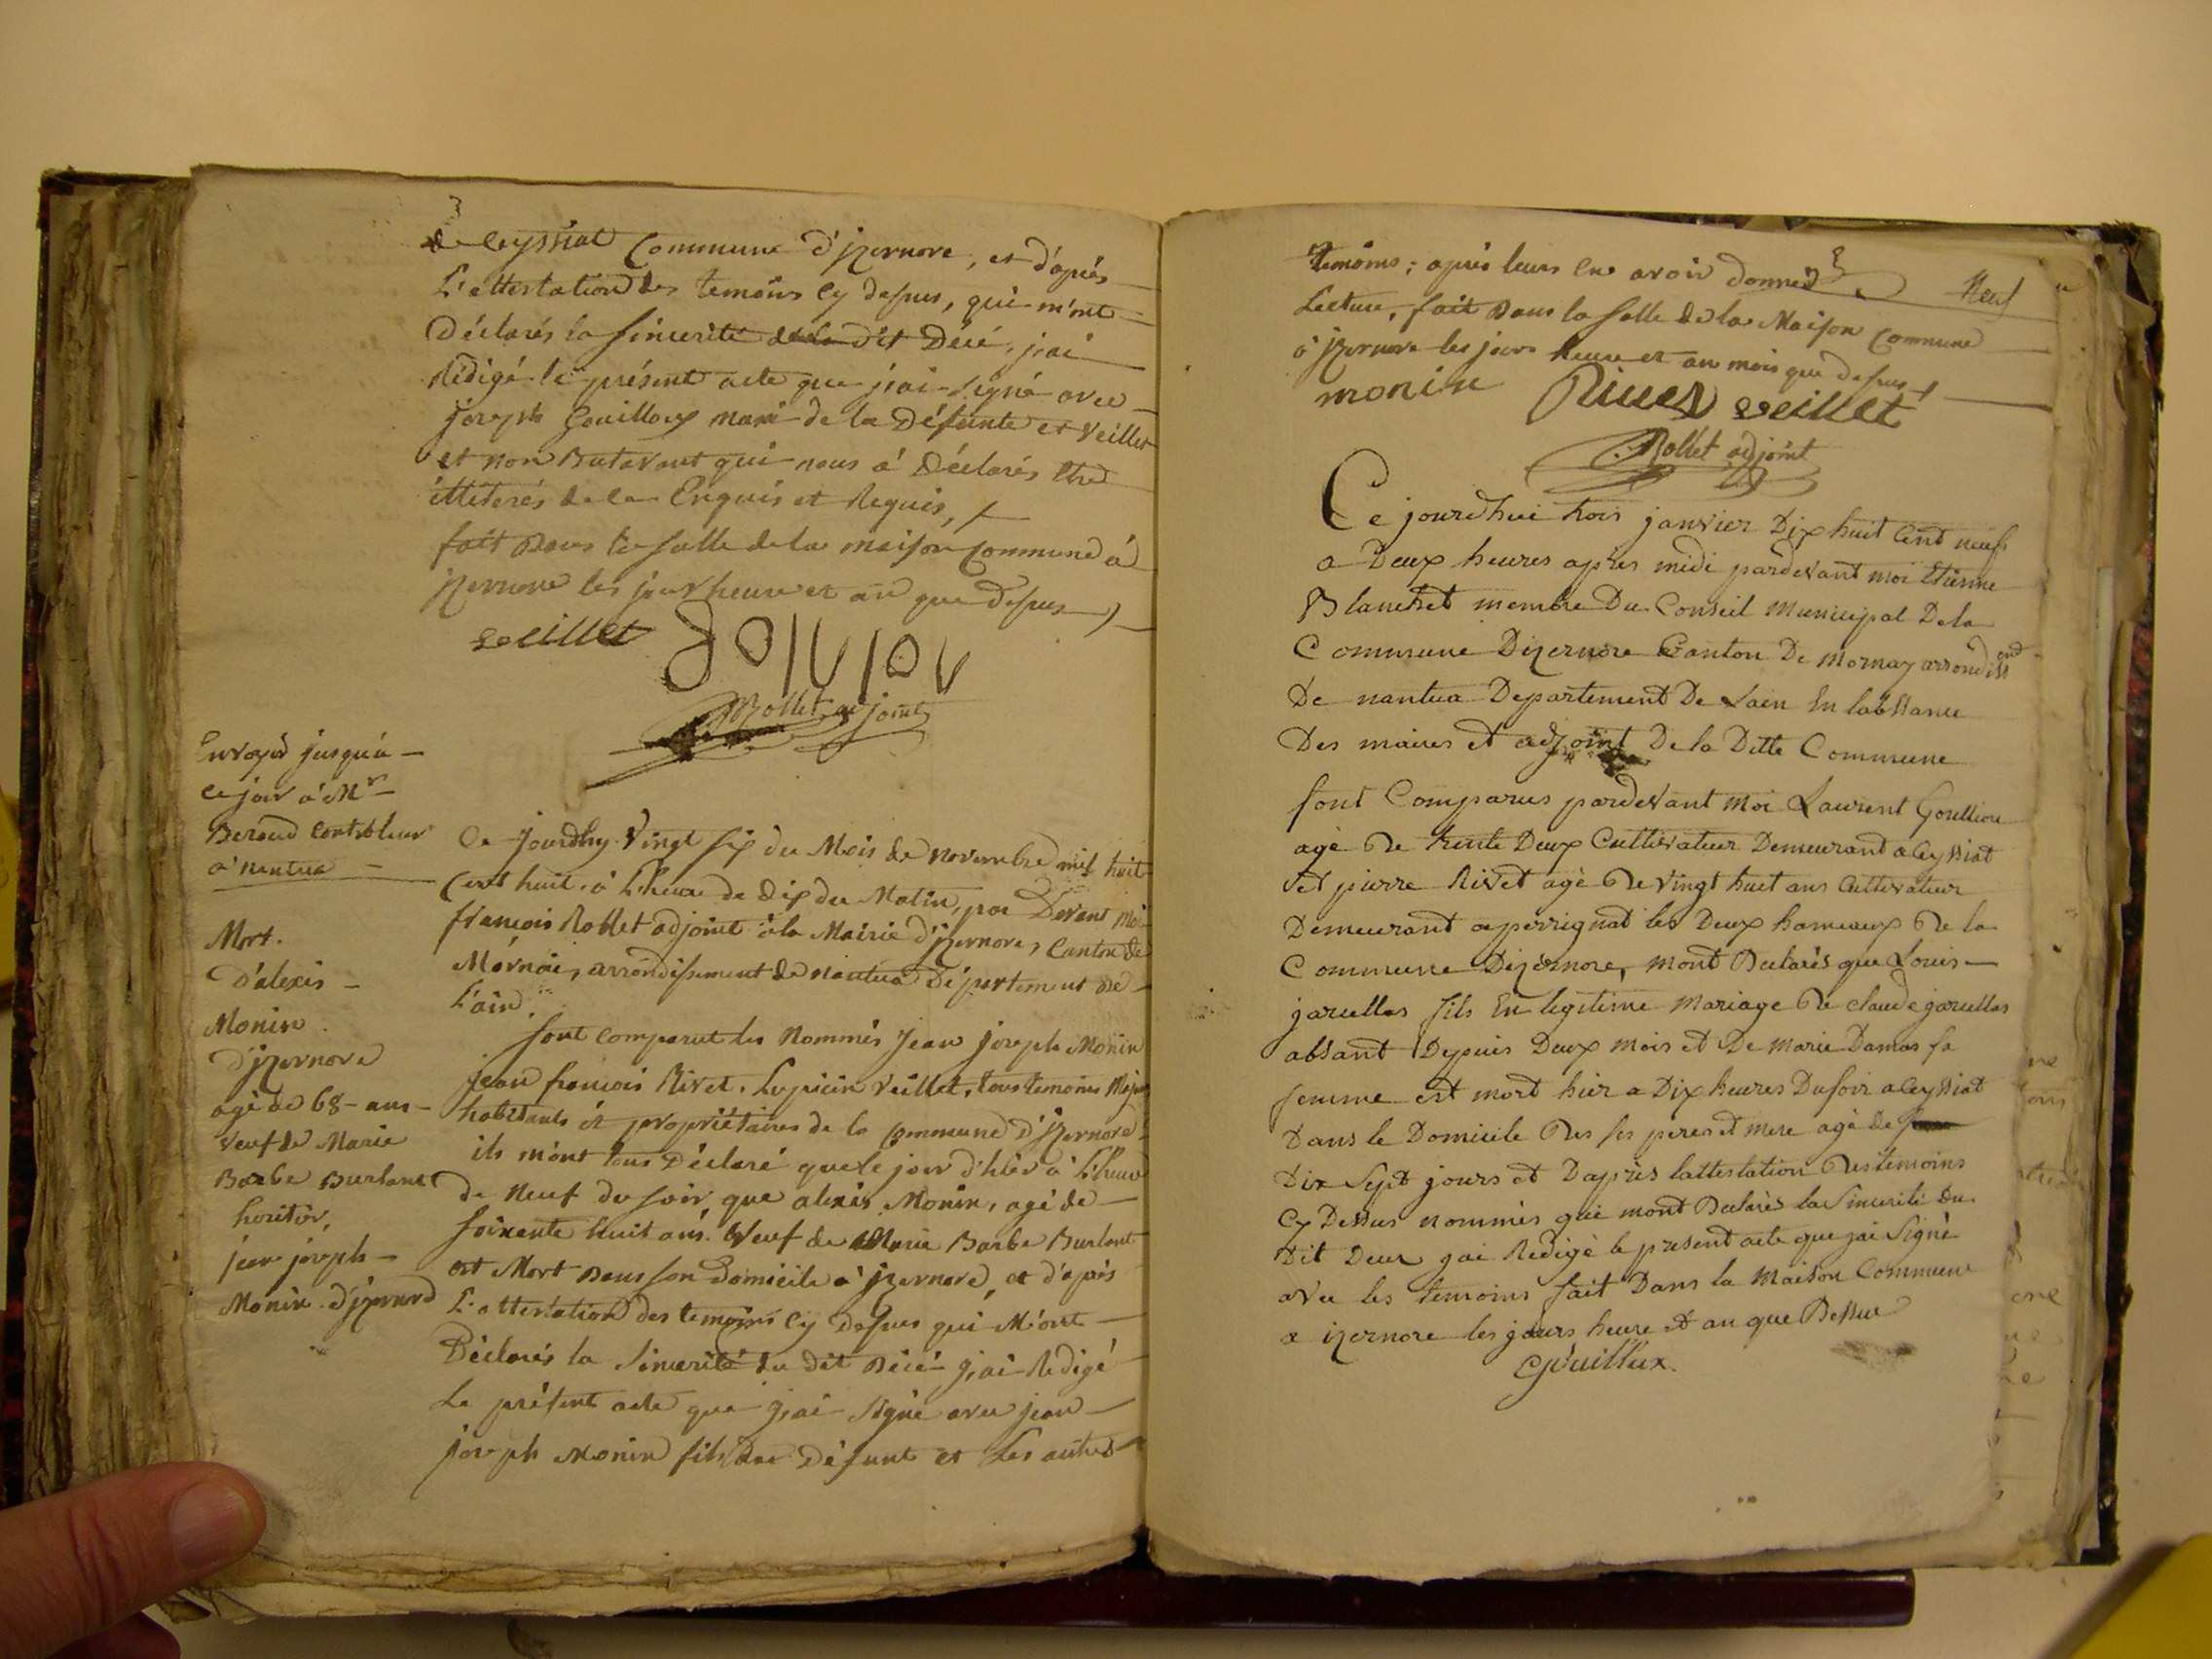 de Ceyssiat Commune d'jzernore, et d'après
L'attestation des temoins Cy dessus, qui m'ont
Déclarés la sincerité dit Décé, j'ai
Rédigé le présent acte que j'ai signé avec
joseph Gouilloux mari de la Défunte et Veillet
et non Butavant qui nous à Déclarés Etre
illiterés de ce Enquis et Requis,
fait Dans la salle de la maison Commune à
jzernore les jour heure et an que dessus
veillet
Rollet adjoint
Envoyé jusqu'à
ce jour à Mr
Beroud Controleur
à nantua
Ce jourdhuy Vingt six du Mois de novembre mil huit
Cent huit, à l'heure de dix du Matin, par Devant Moi
françois Rollet adjoint à la Mairie d'jzernore, Canton de
Mornai, arrondissement de nantua Département de
L'ain.
Mort.
D'alexis
Monin
d'jzernore
agé de 68 ans
Veuf de Marie
Barbe Burlant
heritier,
jean joseph
Monin d'jzernore
sont comparut les Nommés Jean joseph Monin
jean françois Rivet, Lupicin Veillet, tous temoins Majeurs
habitants et propriétaires de la Commune d'jzernore
ils m'ont tous Déclaré que le jour d'hier à l'heure
de Neuf du soir, que alexis Monin, agé de
soixante huit ans. Veuf de Marie Barbe Burlant
est Mort Dans son Domicile à jzernore, et d'après
L'attestation des temoins Cy dessus qui M'ont
Déclarés la Sincerité du dit Décé j'ai Rédigé
Le présent acte que j'ai signé avec jean
joseph Monin fils Du Défunt et Les autres
temoins; après leurs en avoir donné
Neuf
Lecture, fait Dans la salle de la Maison Commune
à jzernore les jour heure et an mois que dessus
monin Rivet veillet
Rollet adjoint
Ce jourdhui trois janvier Dix huit Cent neuf
a Deux heures après midi pardevant moi Etienne
Blanchet membre Du Conseil Municipal De la
Commune Dizernore Canton De Mornay arrondissend
De nantua Departement De Lain En labssance
Des maires et adjoint De la Ditte Commune
sont Comparus pardevant moi Laurent Goullioux
agé De trente Deux Cultivateur Demeurant a Ceyssiat
et pierre Rivet agé De Vingt huit ans Cultivateur
Demeurant a perrignat les Deux hameaux De la
Commune Dizernore, mont Declarés que Louis
jarcellas fils En legitime Mariage De claude jarcellas
absant Depuis Deux mois et De Marie Damas sa
femme est mort hier a Dix heures Du soir a Ceyssiat
Dans le Domicile Des ses peres et mere agé de
Dix Sept jours et Dapres lattestation Des temoins
Cy Dessus nommés qui mont Declarés la Sincerité du
Dit Deces jai Redigé le present acte que jai Signé
avec les temoins fait Dans la Maison Commune
a izernore les jours heure et an que Dessus
Gouillux.